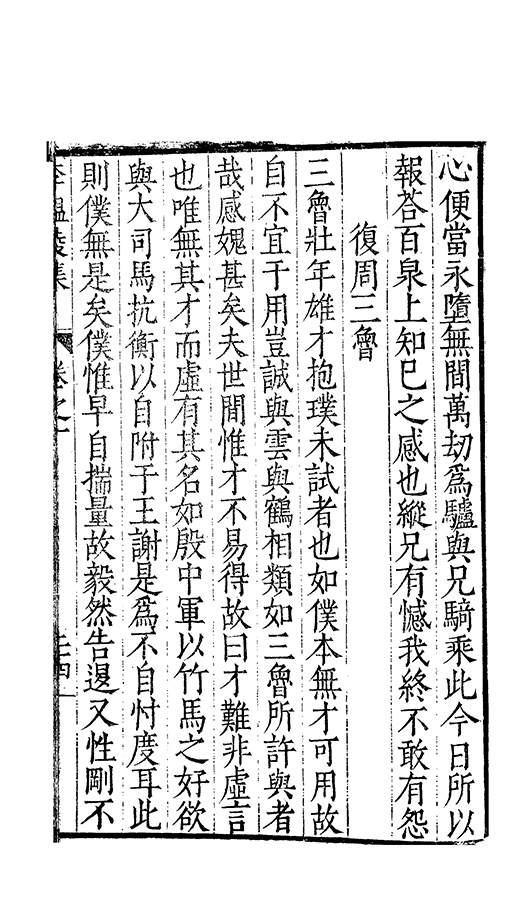 心便當永墮無間萬劫爲驢與兄騎乘此今日所以
報荅百泉上知巳之感也縱兄有憾我終不敢有怨
復周三魯
三魯壯年雄才抱璞未試者也如僕本無才可用故
自不宜于用豈誠與雲與鶴相類如三魯所許與者
哉感媿甚矣夫世間惟才不易得故曰才難非虛言
也唯無其才而虛有其名如殷中軍以竹馬之好欲
與大司馬抗衡以自附于王謝是爲不自忖度耳此
則僕無是矣僕惟早自揣量故毅然告退又性剛不
李溫陵集
卷之